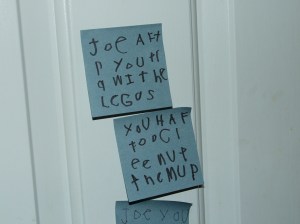 JOE AFT
r YOU rr
a WIThE
LEGOS
YOU HAF
to oCl
ee NUT
theMUP
JOE YOU